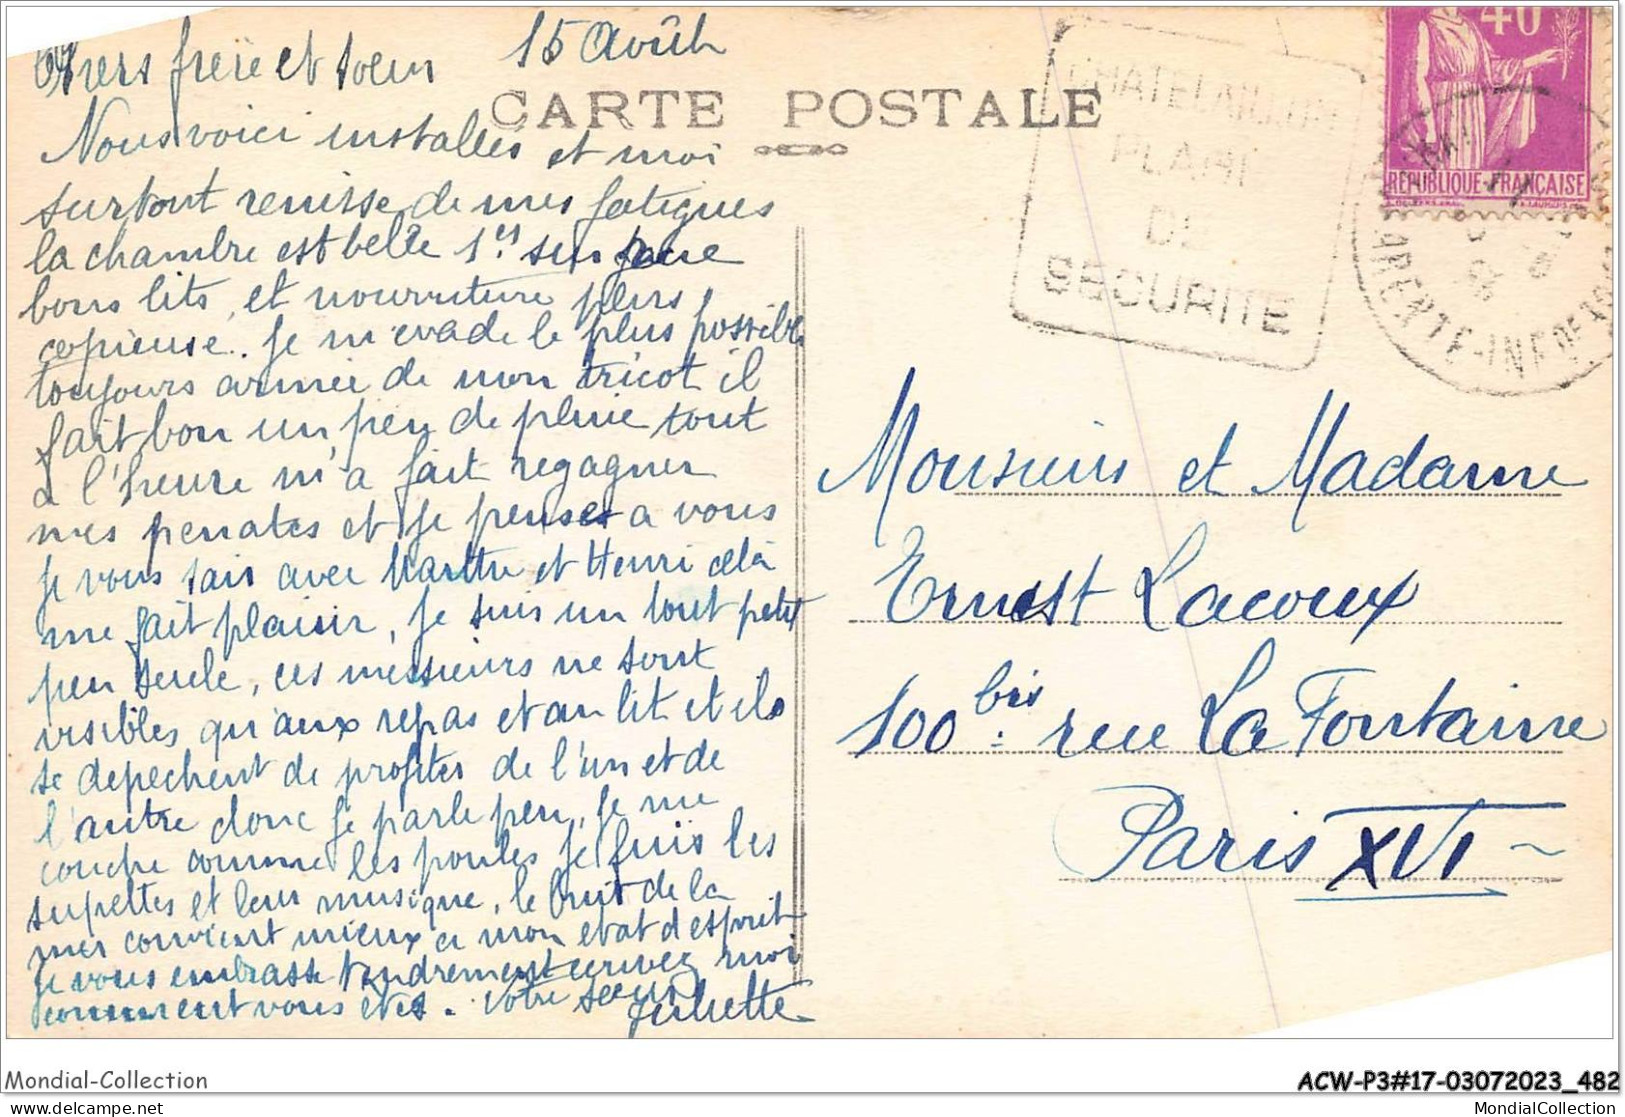 Chers frère et soeur 15 Août
CARTE POSTALE
Nous voici installés et moi
surtout remisse de mes fatigues
la chambre est belle 1er sur
bons lits, et nourriture plus
copieuse.. Je m'evade le plus possible
toujours armée de mon tricot il
fait bon un peu de pluie tout
a l'heure m'a fait regagner
mes penates et je penses a vous
je vous sais avec Marthe et Henri celà
me fait plaisir, Je suis un tout petit
peu seule, ces messieurs ne sont
visibles qu'aux repas et au lit et ils
se depechent de profiter de l'un et de
l'autre donc je parle peu, Je me
couche comme les poules je fuis les
et leur musique, le bruit de la
mer convient mieux a mon etat d'esprit
je vous embrasse tendrement ecrivez moi
comment vous etes. Votre soeur
Juliette
CHATELAILLON
PLAGE
DE
SECURITE
40
REPUBLIQUE-FRANÇAISE
CHARENTE-INFRE
Monsieur et Madame
Ernest Lacoux
100 bis rue La Fontaine
Paris XVI
Mondial-Collection
ACW-P3#17-03072023_482
www.delcampe.net
MondialCollection